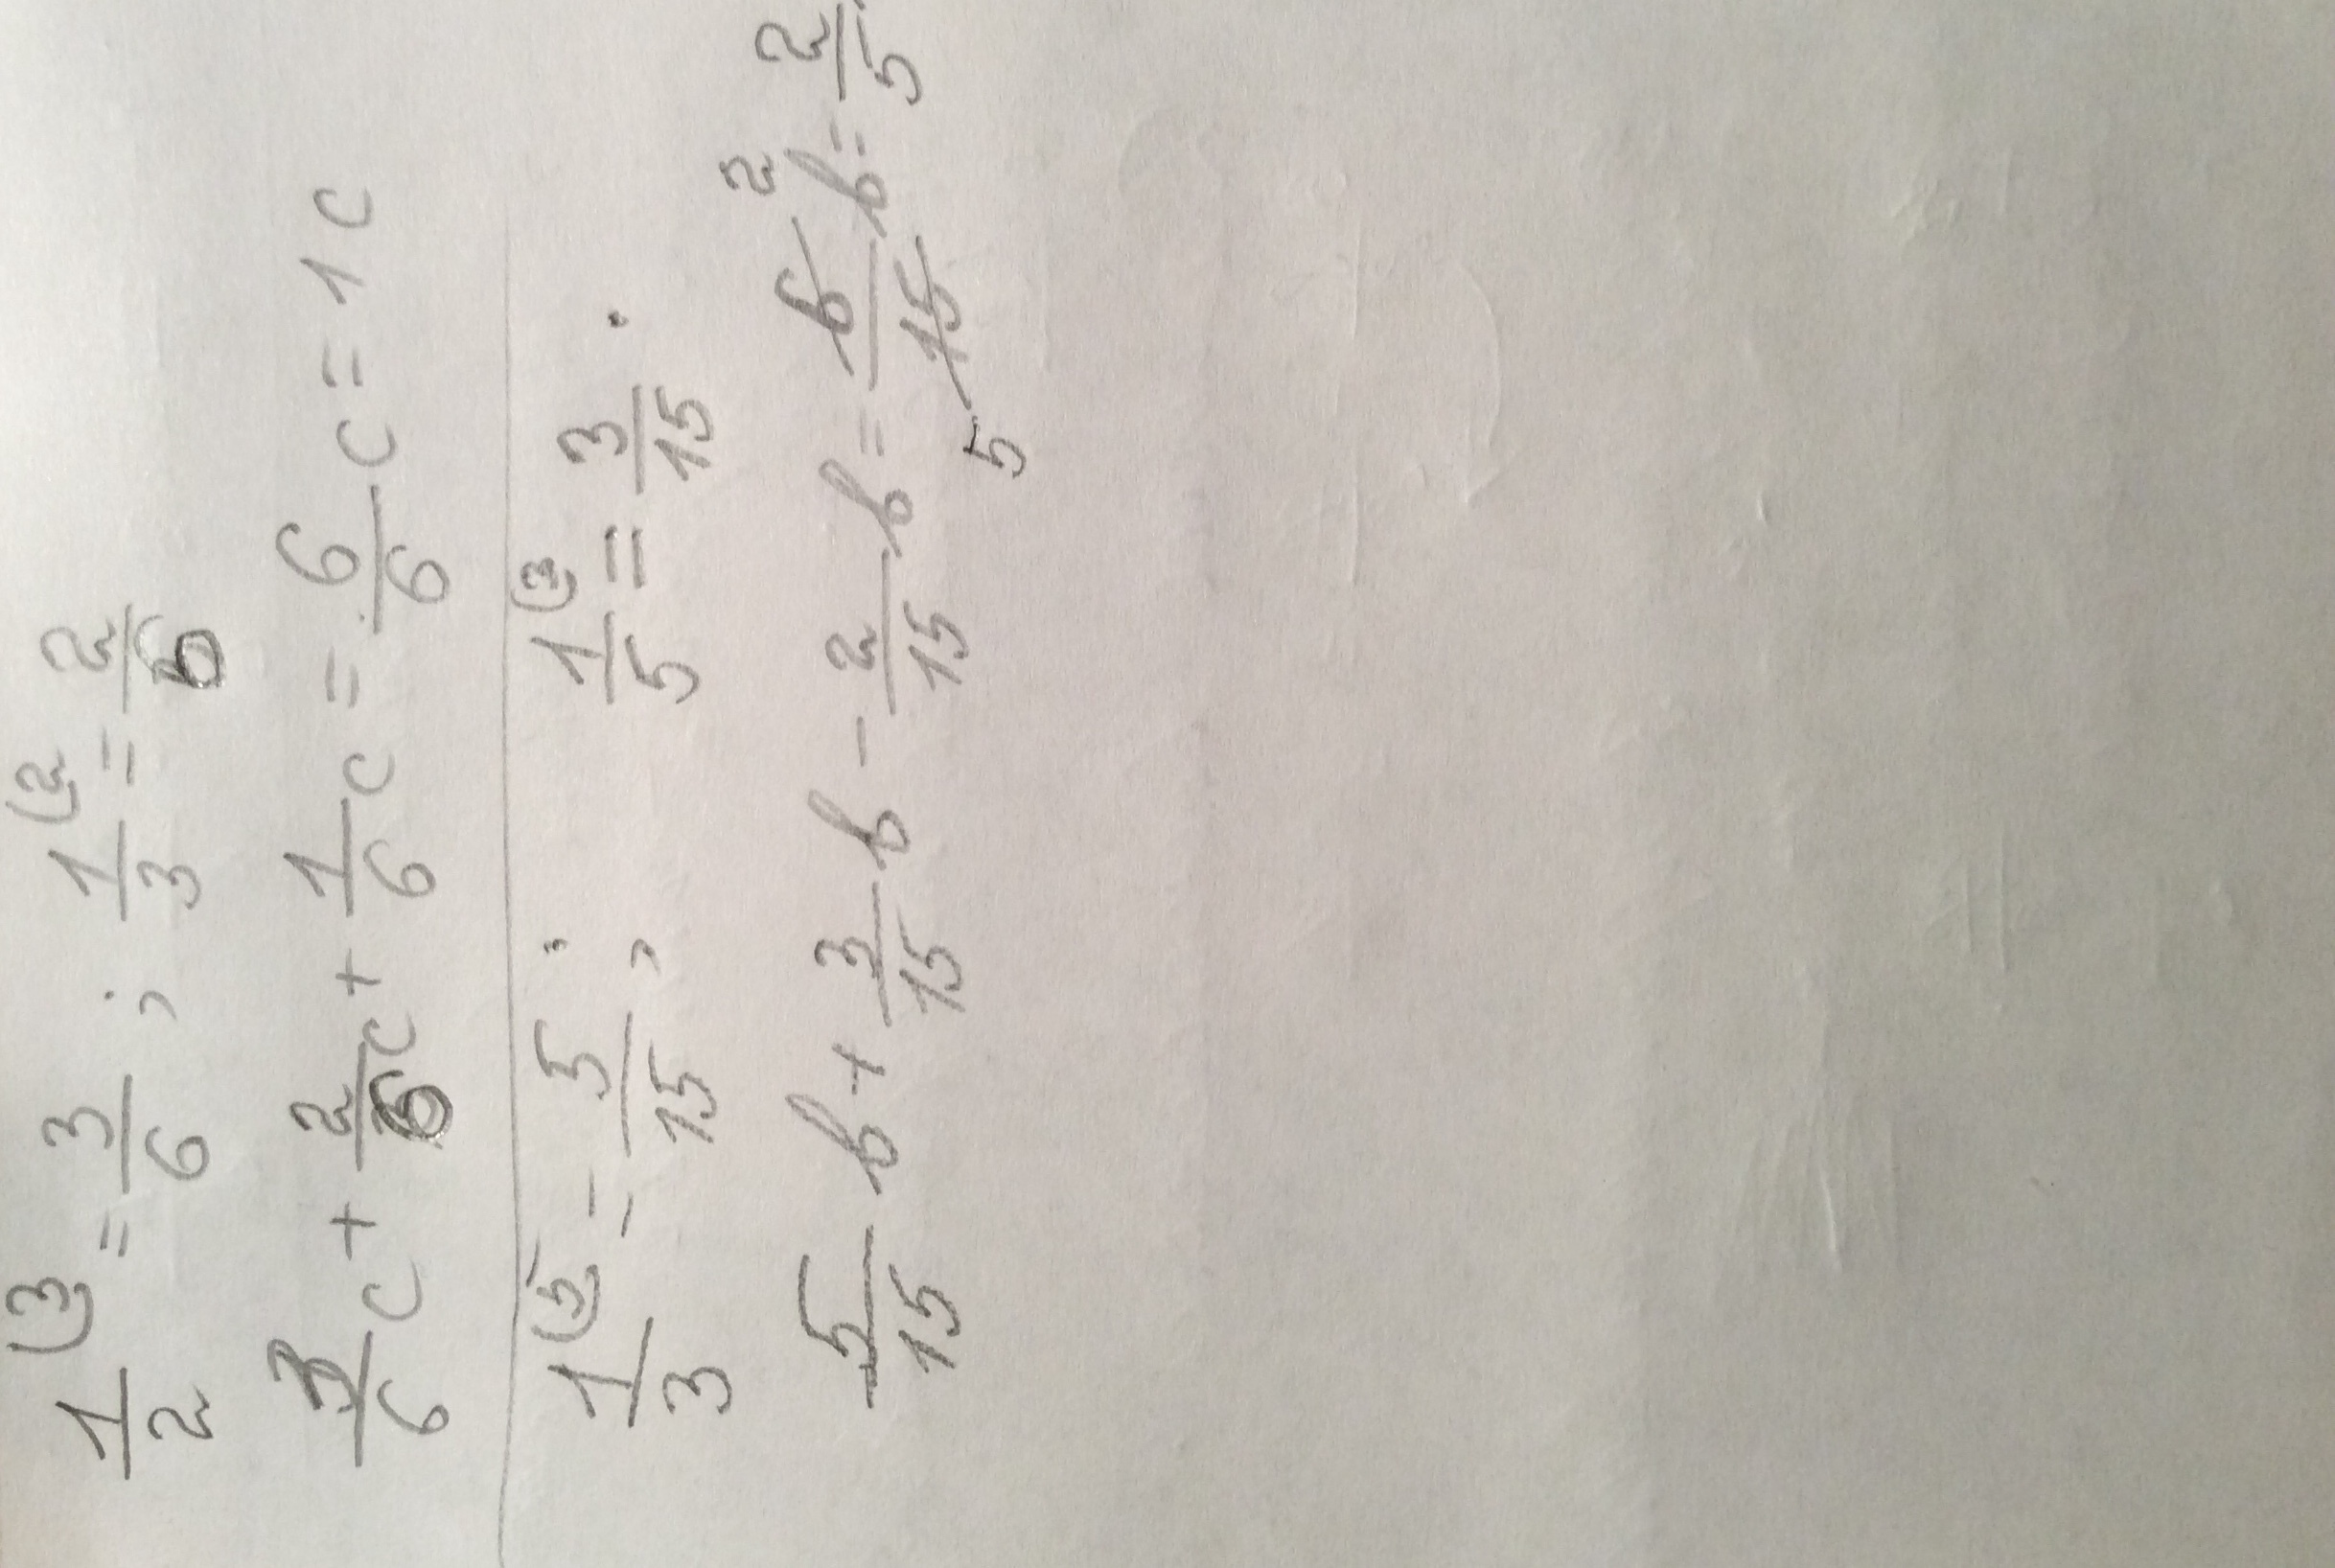 1/2 (3 = 3/6 ; 1/3 (2 = 2/6
3/6 c + 2/6 c + 1/6 c = 6/6 c = 1 c
1/3 (5 = 5/15 ; 1/5 (3 = 3/15 .
5/15 b + 3/15 b - 2/15 b = 6/15 b = 2/5
2
5